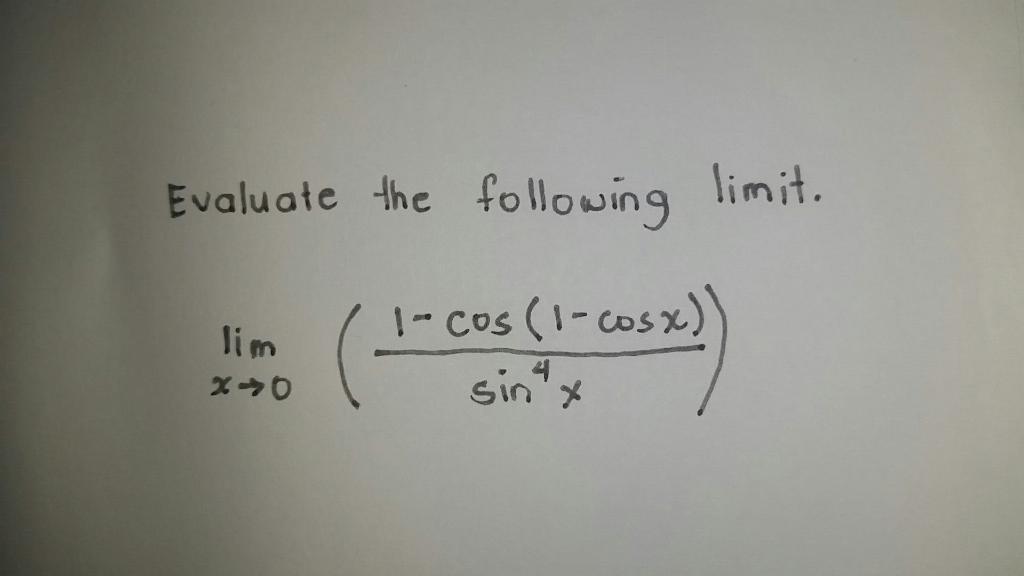 Evaluate the following limit.
lim x→0 ( (1-cos(1-cosx)) / (sin⁴x) )